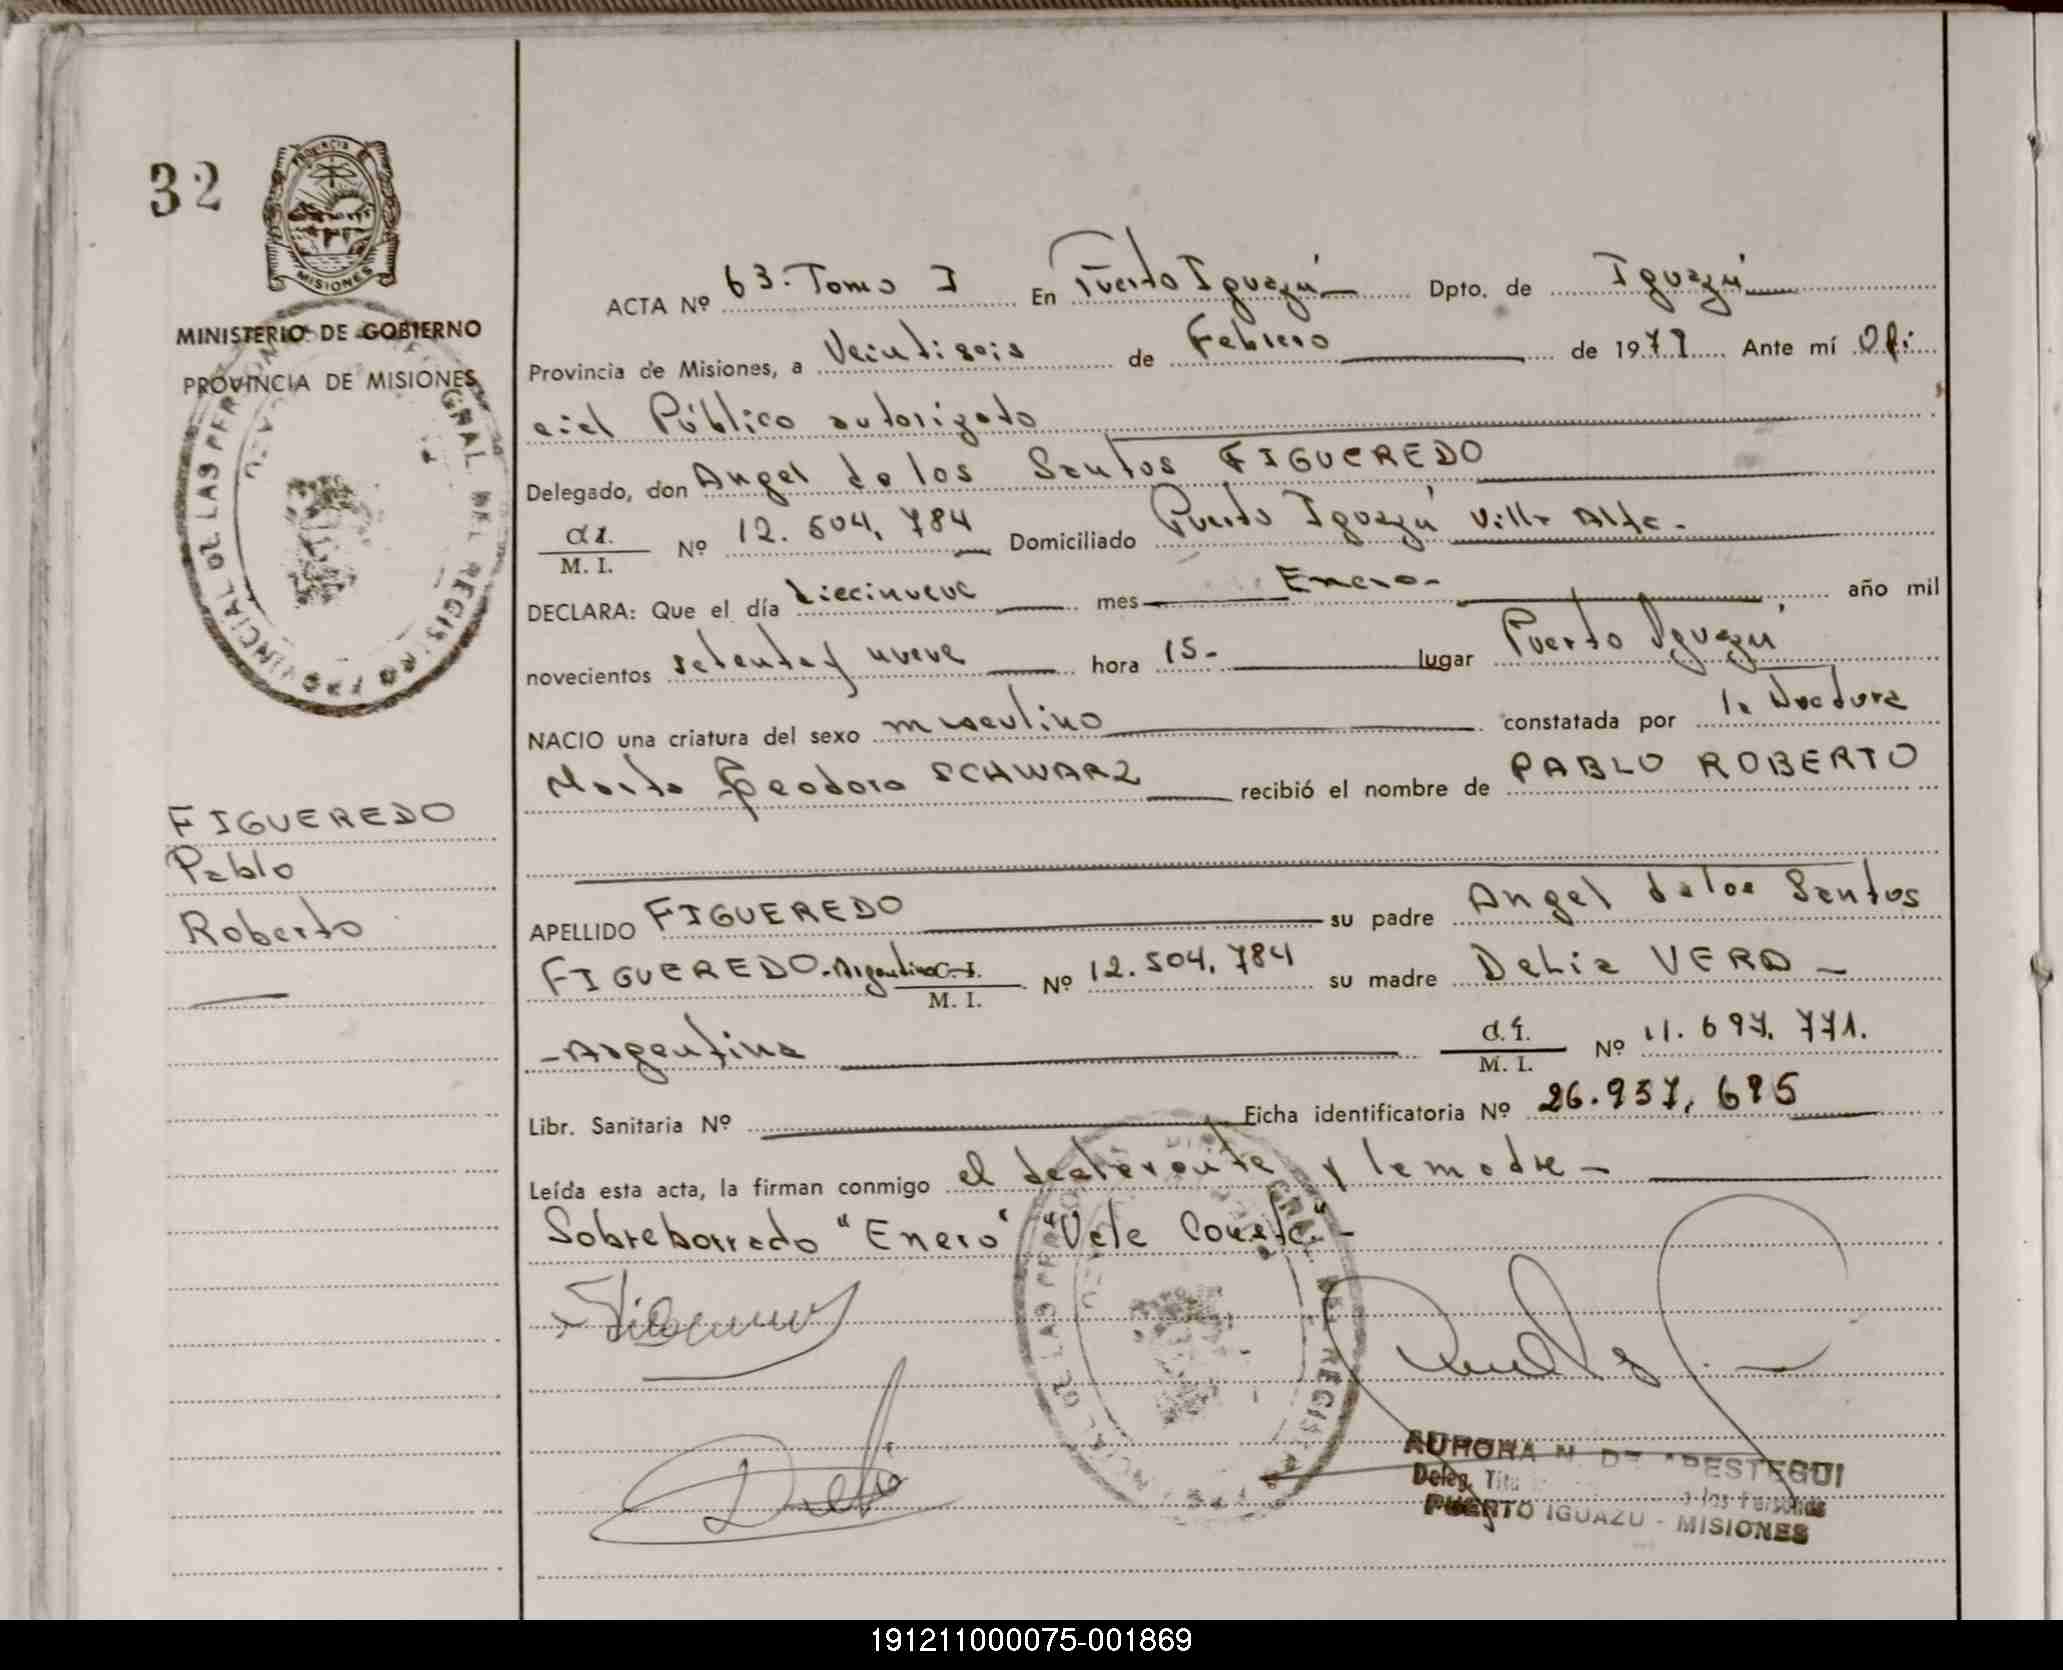 32
PROVINCIA DE
MISIONES
MINISTERIO DE GOBIERNO
PROVINCIA DE MISIONES
FIGUEREDO
Pablo
Roberto
ACTA Nº 63. Tomo I En Puerto Iguazú Dpto. de Iguazú
Provincia de Misiones, a Veintiseis de Febrero de 1979 Ante mí Ofi
cial Público autorizado
Delegado, don Angel de los Santos FIGUEREDO
C.I.
M. I. Nº 12.504.784 Domiciliado Puerto Iguazú Villa Alta.
DECLARA: Que el día diecinueve mes Enero- año mil
novecientos setenta y nueve hora 15- lugar Puerto Iguazú
NACIO una criatura del sexo masculino constatada por la Doctora
Marta Teodora SCHWARZ recibió el nombre de PABLO ROBERTO
APELLIDO FIGUEREDO su padre Angel de los Santos
FIGUEREDO.-Argentino C.I.
M. I. Nº 12.504.784 su madre Delia VERA -
-Argentina C.I.
M. I. Nº 11.697.771.
Libr. Sanitaria Nº Ficha identificatoria Nº 26.957.695
Leída esta acta, la firman conmigo el declarante y la madre-
Sobreborrado "Enero" "Vale Conste"-
AURORA M. DE APESTEGUI
Deleg. Titu
PUERTO IGUAZU - MISIONES
191211000075-001869